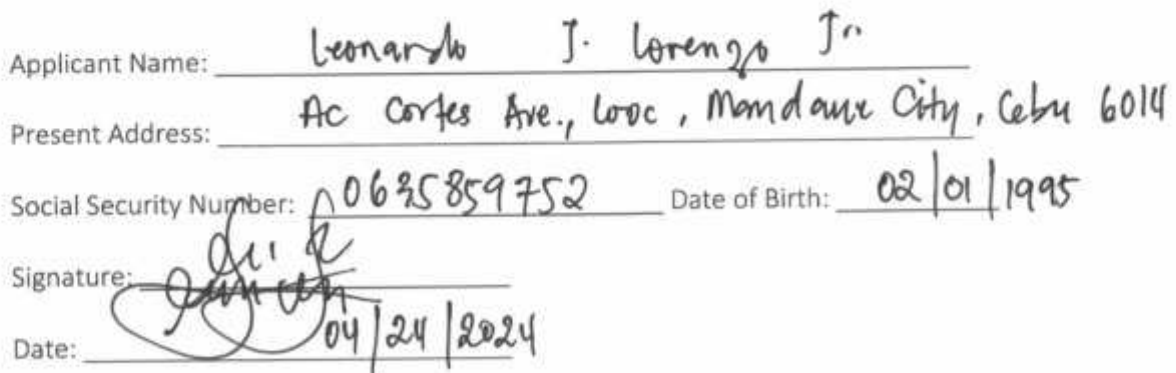 Applicant Name: Leonardo J. Lorenzo Jr
Present Address: Ac Cortes Ave., Looc, Mandaue City, Cebu 6014
Social Security Number: 0635859752 Date of Birth: 02/01/1995
Signature:
Date: 04/24/2024